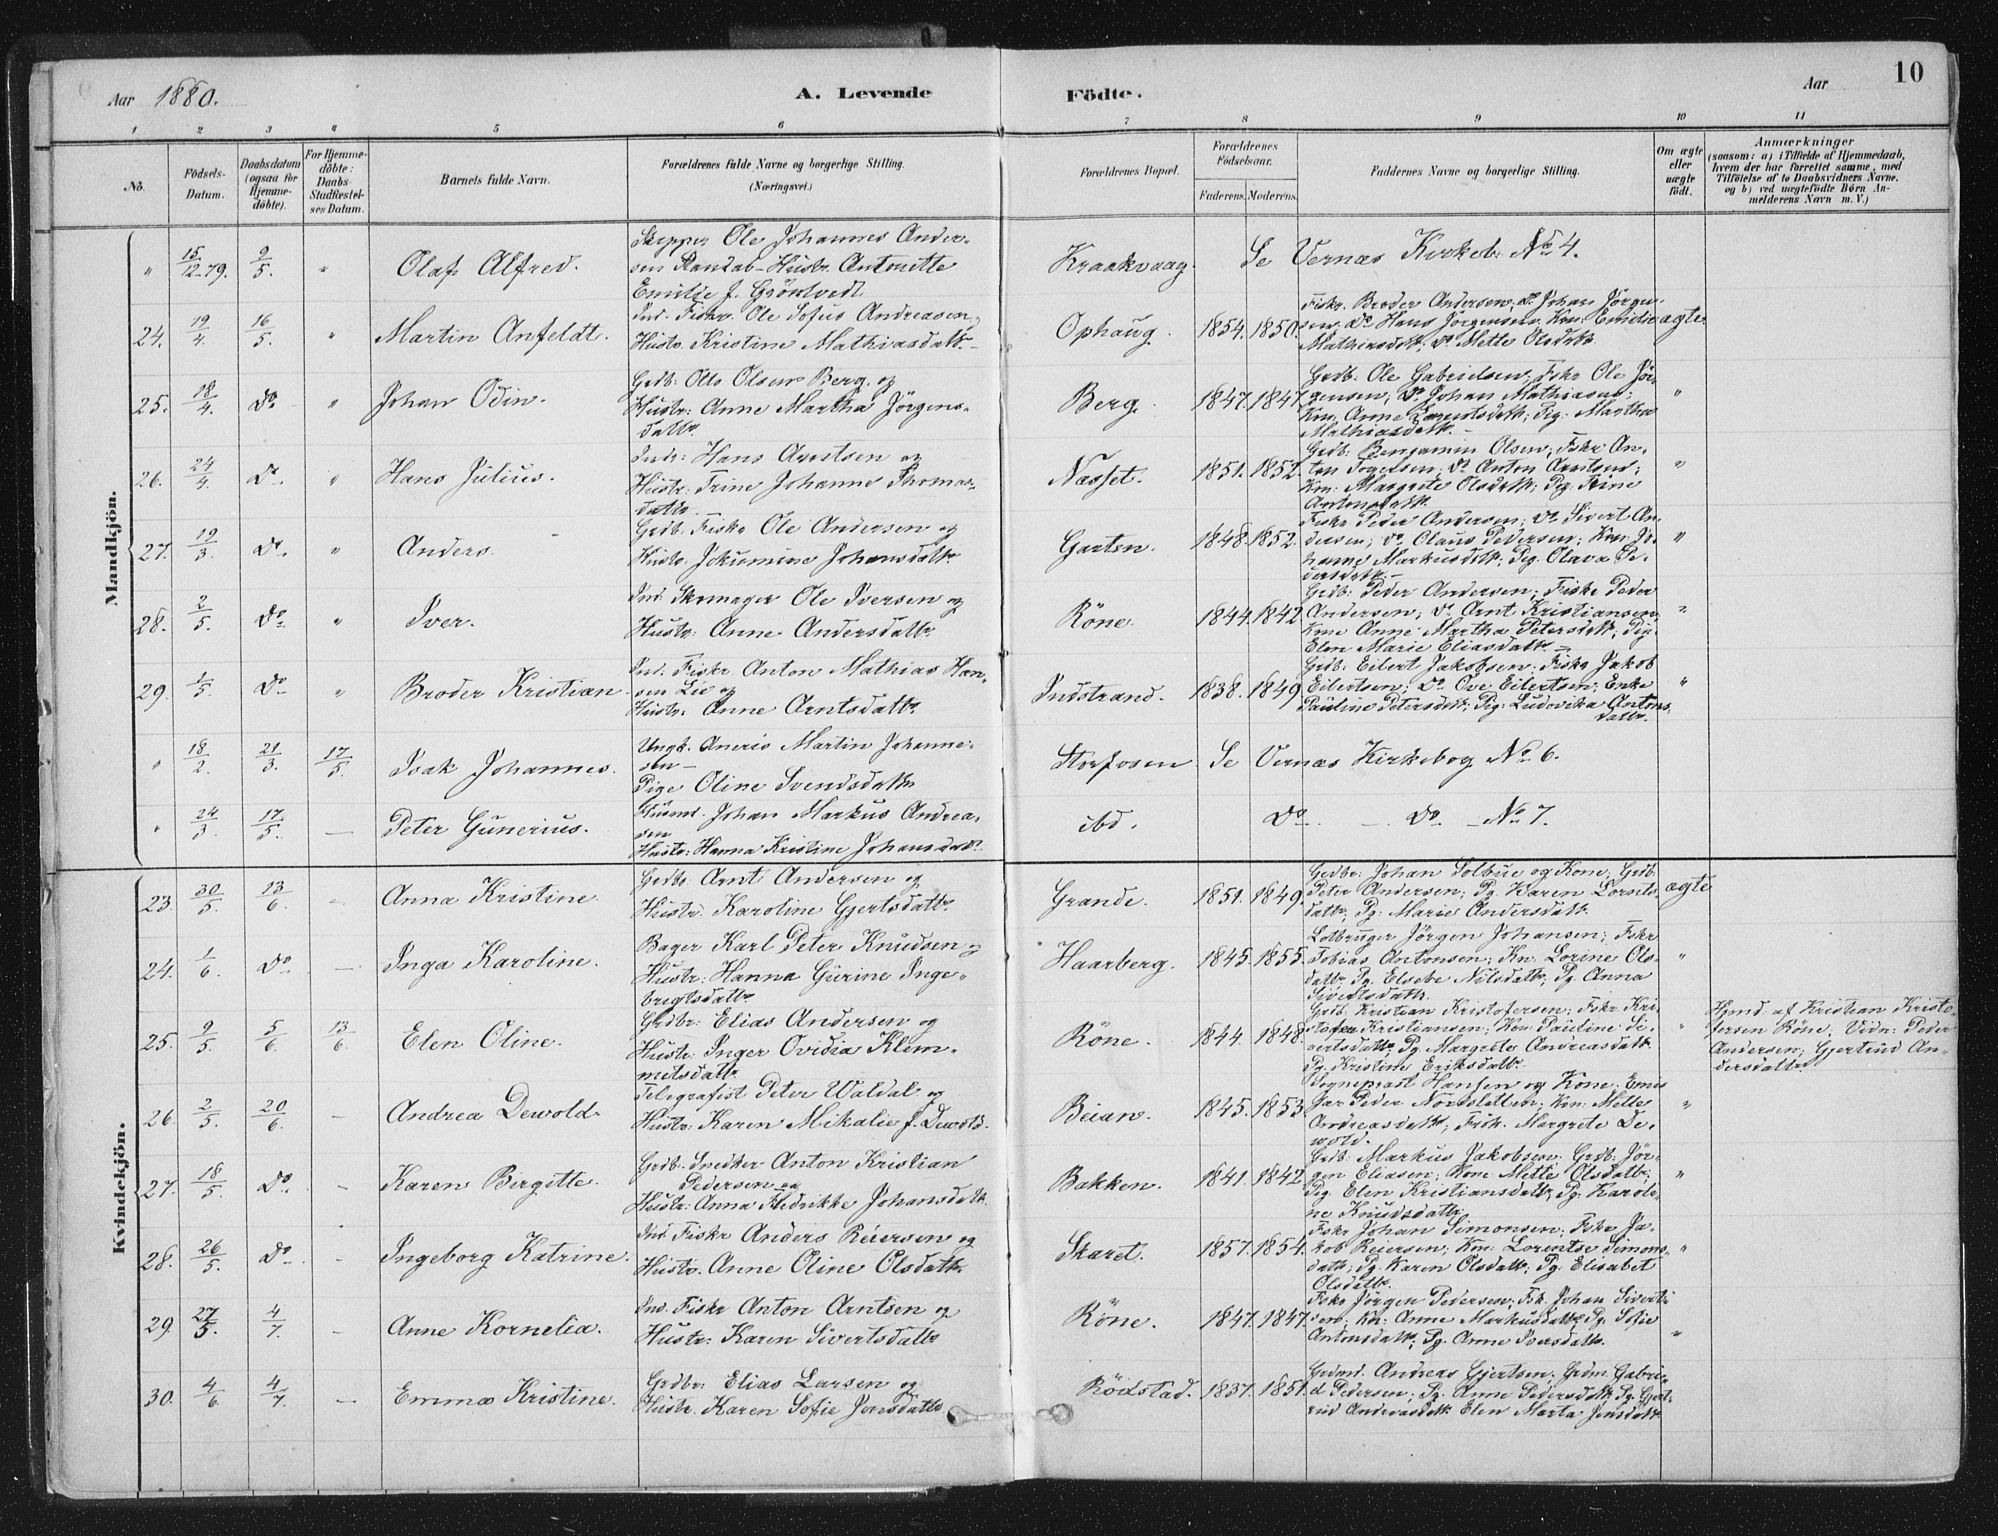 Aar 1880.
A. Levende
Födte.
Aar
10
1 2 3 4 5 6 7 8 9 10 11
No.
Födsels-
Datum.
Daabsdatum
(ogsaa for
Hjemme-
döbte).
For Hjemme-
döbte:
Daabs-
Stadfæstel-
ses Datum.
Barnets fulde Navn.
Forældrenes fulde Navne og borgerlige Stilling.
(Næringsvei.)
Forældrenes Bopæl.
Forældrenes
Födselsaar.
Faderens. Moderens.
Faddernes Navne og borgerlige Stilling.
Om ægte
eller
uægte
födt.
Anmærkninger
(saasom: a) i Tilfælde af Hjemmedaab,
hvem der har forrettet samme, med
Tilföielse af to Daabsvidners Navne.
og b) ved uægtefödte Börn An-
melderens Navn m. V.)
Mandkjön.
" 15/12-79. 9/5. " Olaf Alfred.
Skipper Ole Johannes Ander-
sen Hustr. Antonette
Emilie J. Gröntvedt
Kraakvaag. Se Vernæs Kirkeb. No 4.
24. 19/4. 16/5. " Martin Anfeldt.
Ind. Fiskr. Ole Sofus Andreasen,
Hustr. Kristine Mathiasdattr.
Ophaug. 1854. 1850.
Fiskr. Broder Andersen; do Johan Jörgen-
sen, do Hans Jörgensen, Kon. Emilie
Mathiasdtr; do Mette Olsdattr
ægte
25. 18/4. Do. " Johan Odin.
Grdb. Otto Olsen Berg. og
Hustr: Anne Martha Jörgens-
dattr.
Berg. 1847. 1847.
Grdb. Ole Gabrielsen; Fskr Ole Jör-
gensen, do Johan Mathiasen;
Kon. Anne Lorentsdatr; Pig. Martha
Mathiasdatr. "
26. 24/4. Do. " Hans Julius.
Indr: Hans Arntsen og
Hustr: Trine Johanne Thomas-
dattr.
Næsset. 1851. 1852.
Grdb. Benjamin Olsen; Fskr. An-
ton do Anton Arntsen;
Kon: Margrete Olsdatr; Pig.
Antonsdatr. "
27. 19/3. Do. " Anders.
Grdb. Fiskr Ole Andersen og
Hustr. Jokumine Johansdattr
Garten. 1848. 1852.
Fiskr Peder Andersen; do Sivert An-
dersen; do Olaus Pedersen; Kon: Jo-
hanne Markusdtr. Pig. Olava Pe-
dersdatr. "
28. 2/5. Do " Iver.
Ind. Skomager Ole Iversen og
Hustr: Anne Andersdattr
Röne. 1844. 1842.
Grdb: Peder Andersen; Fiskr Peder
Andersen; do Arnt Kristiansen,
Kone Anne Martha Petersdtr, Pig.
Elen Marie Eliasdattr "
29. 1/5. Do " Broder Kristian.
Ind. Fiskr Anton Mathias Han-
sen Lie og
Hustr. Anne Arntsdattr.
Indstrand. 1838. 1849
Grdb: Eilert Jakobsen. Fiskr Jakob
Eilertsen; do Ove Eilertsen; Enke
Pauline Petersdtr; Pig: Ludovika Antons-
dattr. "
" 18/2. 21/3. 17/5. Isak Johannes.
Ungk. Martin Johanne-
sen
Pige Oline Svendsdattr
Storfosen Se Vernæs Kirkebog No 6.
" 24/3. 17/5. Peter Gunerius.
Husmd. Johan Markus Andrea-
sen
Hustr: Hanna Kristine Johansdatr
ibd. Do. Do No 7.
Kvindekjön.
23. 30/5. 13/6. Anna Kristine
Grdbr. Arnt Andersen og
Hustr. Karoline Gjertsdattr.
Grande. 1851. 1849.
Grdbr. Johan Solbue og Kone; Grdb.
Peter Andersen; Pg. Karen Lorents-
dattr; Pg: Marie Andersdatr.
ægte
24. 1/6. Do Inga Karoline.
Bager Karl Peter Knudsen og
Hustr: Hanna Gurine Inge-
brigtsdattr
Haarberg. 1845. 1855.
Lodbruger Jörgen Johansen; Fskr
Tobias Antonsen; Kn. Lorine Ols-
datr. Pg. Elsebe Nilsdattr, Pg. Anna
Sivertsdattr. "
25. 9/5. 5/6. 13/6. Elen Oline.
Grdbr: Elias Andersen og
Hustr: Inger Ovidia Klem-
metsdattr.
Röne. 1844. 1848.
Grdb. Kristian Kristofersen; Fskr Kri-
stofer Kristiansen; Kn: Pauline Si-
vertsdattr; Pg. Margrete Andreasdattr
Pg. Kristine Eriksdattr. "
Hjmd. af Kristian Kristo-
fersen Röne, Vidn: Peder
Andersen; Gjertrud An-
dersdattr
26. 2/5. 20/6. Andrea Dewold.
Telegrafist Peter Waldal og
Hustr: Karen Mikalie f. Dewold.
Beian. 1845. 1853.
Sogneprest Hansen og Kone;
Peder Kn: Mette
Andreasdattr; Frk. Margrete De-
wold. "
27. 18/5. Do. Karen Birgitte.
Grdb. Snedker Anton Kristian
Pedersen og
Hustr: Anna Fredrikke Johansdatr.
Bakken. 1841. 1842
Grdb: Markus Jakobsen. Grdb. Jör-
gen Eliasen; Kone Mette Olsdattr;
Pig. Elen Kristiansdattr, Pg. Karoli-
ne Knudsdattr "
28. 26/5. Do Ingeborg Katrine.
Ind Fiskr Anders Reiersen og
Hustr. Anne Oline Olsdattr
Skaret. 1857. 1854.
Fskr Johan Simonsen; Fskr Ja-
kob Reiersen; Kon: Lorentse Simons-
datr; Pg. Karen Olsdattr; Pg. Elisabet
Olsdattr. "
29. 27/5. 4/7. Anne Kornelia.
Ind. Fiskr Anton Arntsen og
Hustr: Karen Sivertsdattr
Röne. 1847. 1847.
Fskr Jörgen Pedersen; Fsk. Johan Sivert-
sen; Kn: Anne Markusdattr; Pg. Sofie
Antonsdattr, Pg. Anne Iversdattr. "
30. 4/6. 4/7. Emma Kristine.
Grdbr: Elias Larsen og
Hustr. Karen Sofie Jensdattr
Rödstad. 1837. 1851.
Grdmd. Andreas Gjertsen; Grdm. Gabri-
el Pedersen; Pg. Anne Pedersdatr Pg. Gjert-
rud Andreasdatr. Elen Marta Jensdatr